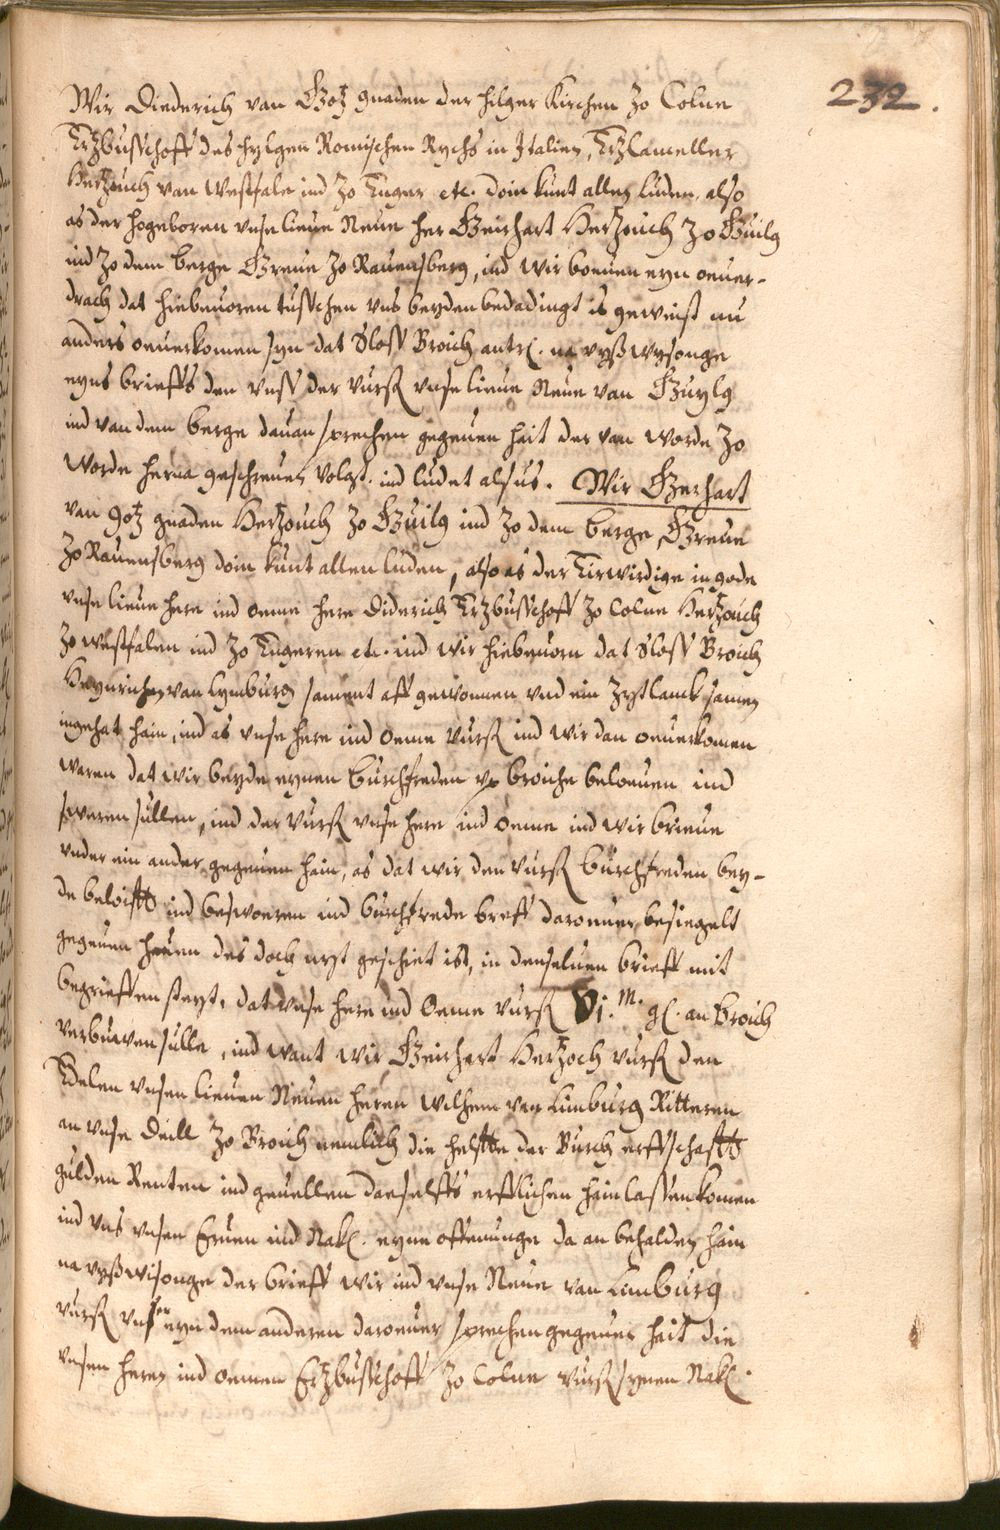 232.
Wir Diederich van Gotz gnaden der hilger Kirchen zo Colne
Ertzbusschoff des hylgen Romischen Rychs in Italien, Ertzcanceller
Hertzouch van Westfale ind zo Enger etc. doin kunt allen luden, also
as der hogeboren unse lieue Neue her Geirhart Hertzouch zo Guilg
ind zo dem berge Greue zo Rauensberg, ind wir bouen eyn ouer-
drach dat hiebeuoren tusschen uns beyden bedadingt is geweist nu
anders ouerkomen syn dat Sloss Broich antr. na uyßwysonge
eyns brieffs den unss der vurß unse lieue Neue van Guylg
ind van dem berge dauan sprechen gegeuen hait der van worde zo
worde herna geschreuen volgt. ind ludet alsus. Wir Gerhart
van gotz gnaden Hertzouch zo Guilg ind zo dem berge, Greue
zo Rauensberg doin kunt allen luden, also as der Eirwirdige in gode
unse lieue here ind oeme here Diderich Ertzbusschoff zo Colne Hertzouch
zo westfalen ind zo Engeren etc. ind wir hiebeuorn dat Sloss Broich
Heynrichen van Lymburg sament aff gewonnen vnd ein zytlanck samen
ingehat hain, ind as unse here ind oeme vurß ind wir dan ouerkomen
waren dat wir beyde eynen burchfreden zo broiche belouen ind
sweren sullen, ind der vurß unse here ind oeme ind wir brieue
under ein ander gegeuen hain, as dat wir den vurß burchfreden bey-
de beloifft ind beswoeren ind burchfrede breff darouuer besiegelt
gegeuen heuen des doch nyt geschiet ist, in denseluen brieff mit
begrieffen steyt, dat unse here ind Oeme vurß Vj.m. gl. an Broich
verbuwen sulle, ind want wir Geirhart Hertzoch vurß den
Edelen unsen lieuen Neuen heren Wilhem van Limburg Ritteren
an unse deill zo Broich nemlich die helffte der Burch erffschafft
gulden Renten ind geuellen daeselffs erfflichen hain lassen komen
ind uns unsen Eruen ind Nak. eyne offenunge da an behalden hain
na uyßwisonge der brieff wir ind unse Neue van Limburg
vurß unser eyn dem anderen darouer sprechen gegeuen hait die
unsen heren ind oemen Ertzbusschoff zo Colne vurß synen Nak.